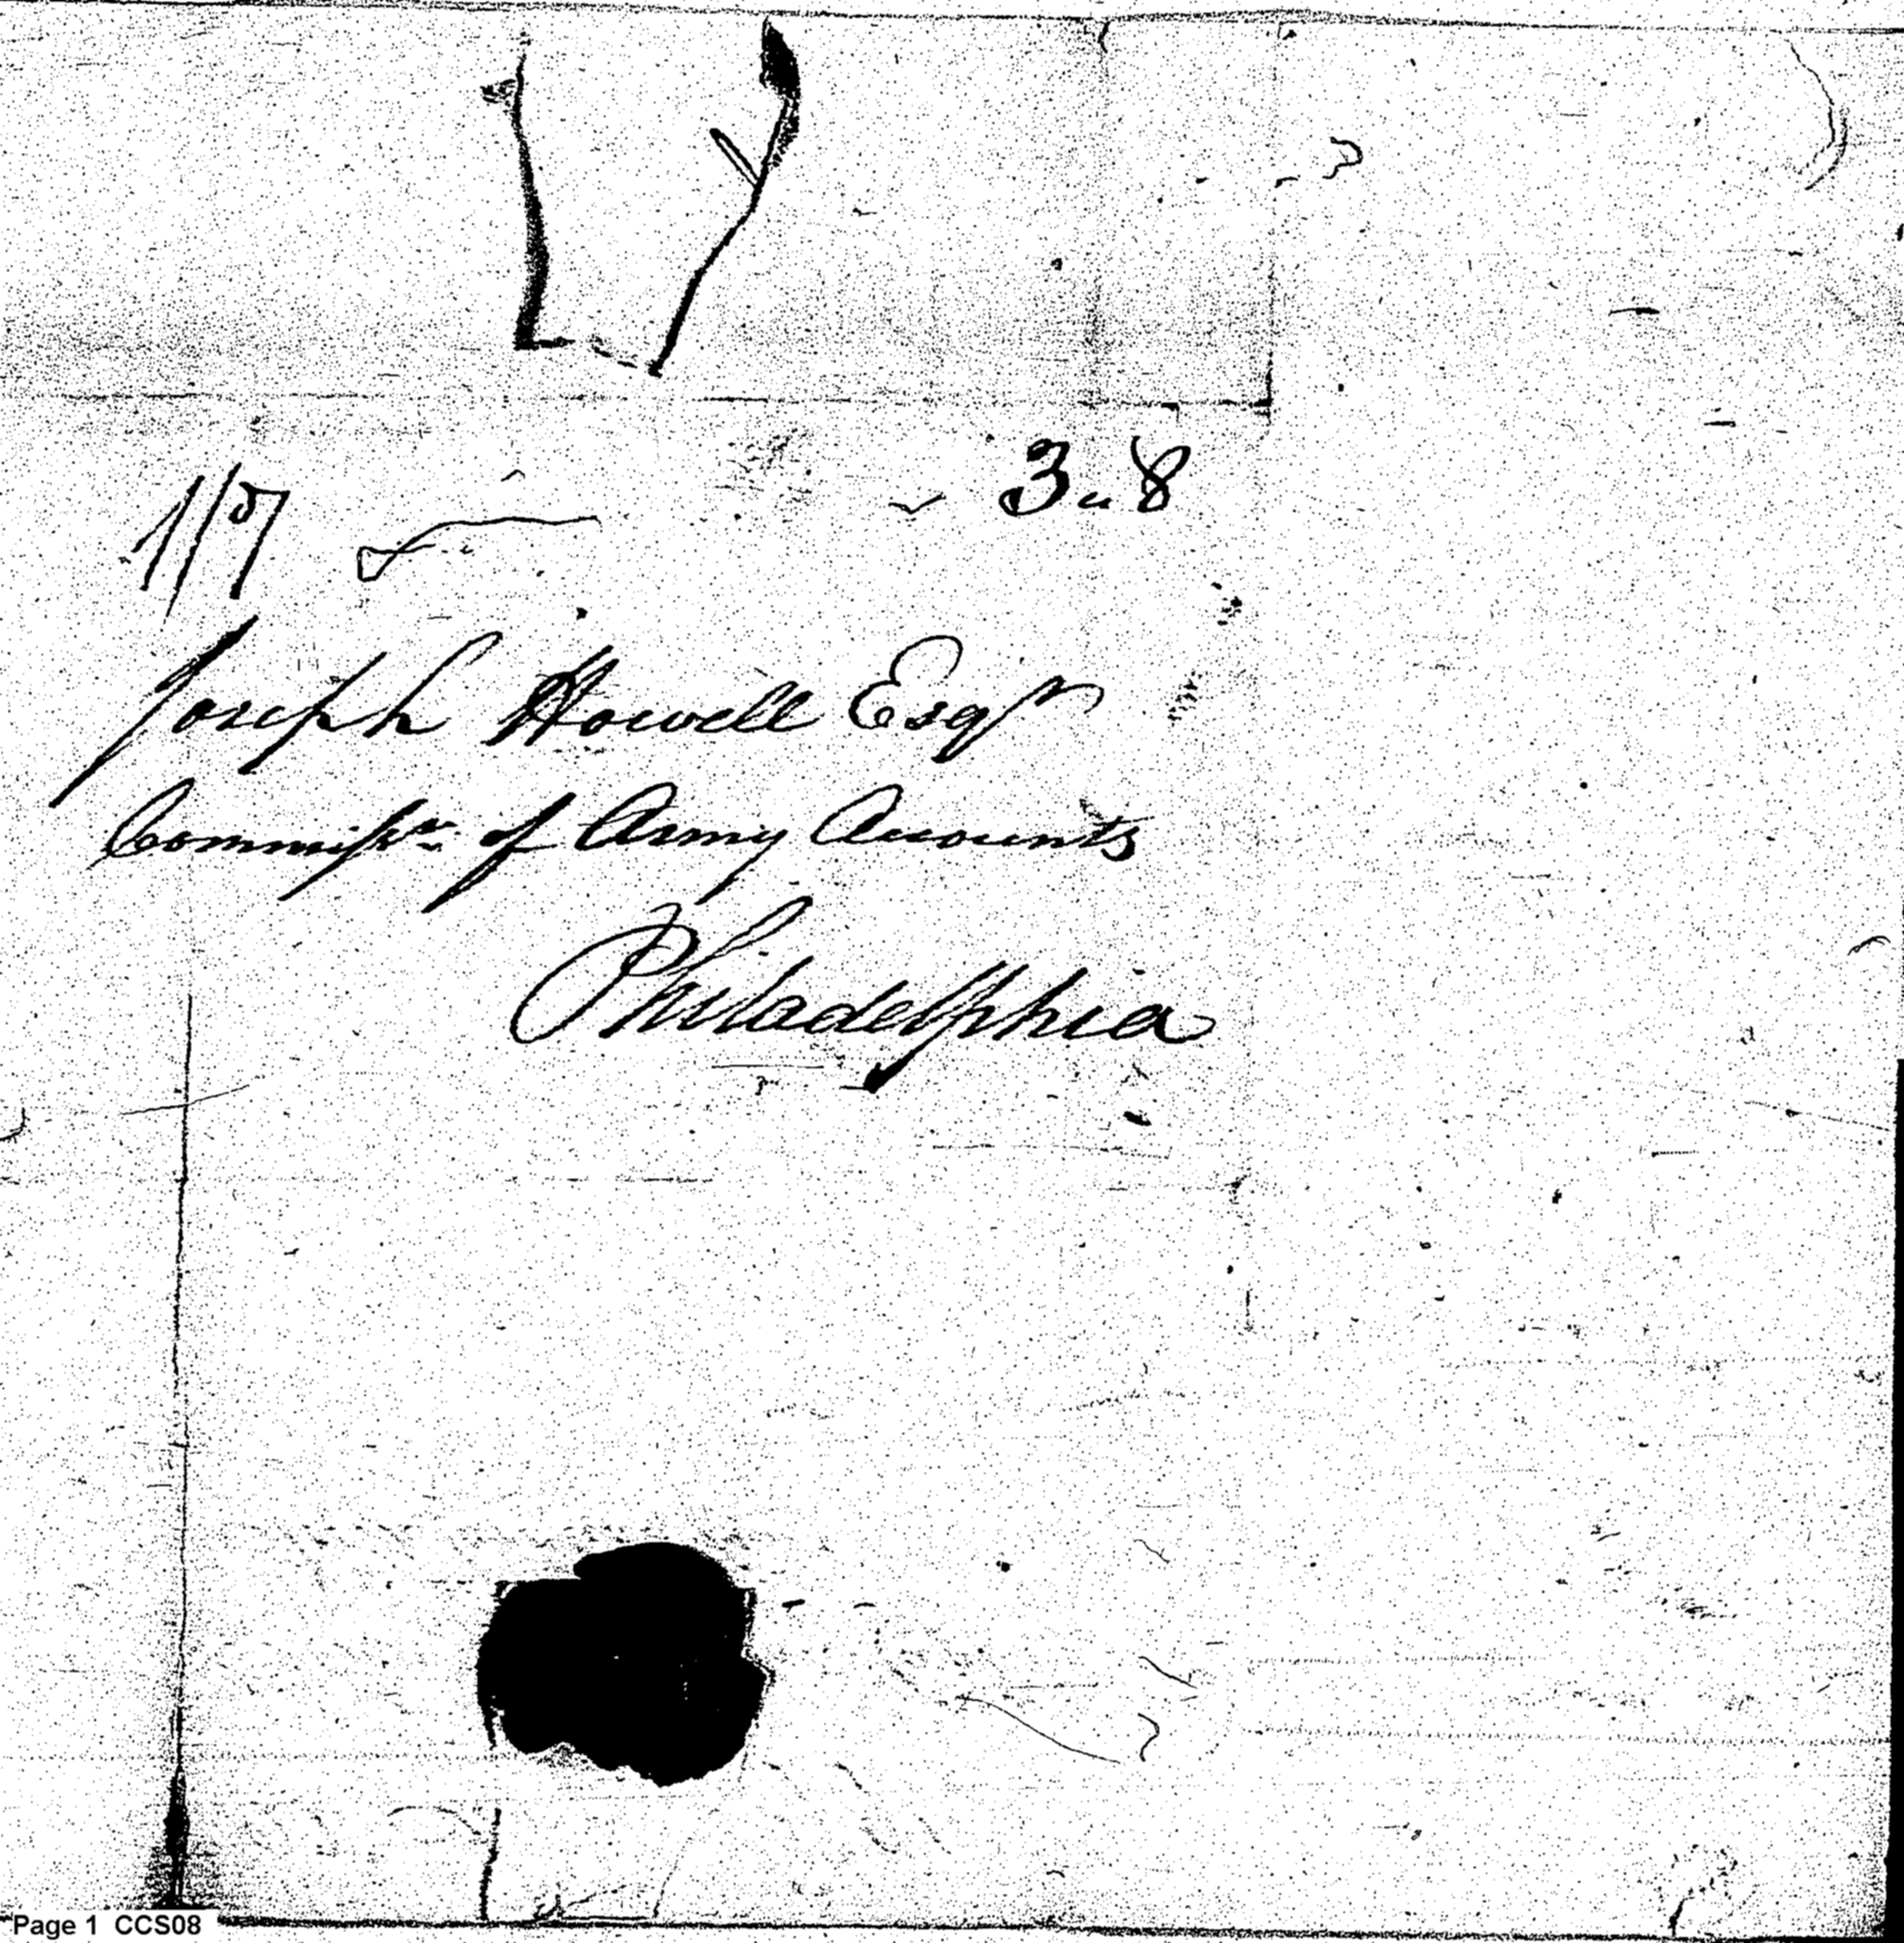 3 " 8
1/7
Joseph Howell Esqr
Commissr. of Army Accounts
Philadelphia
Page 1 CCS08